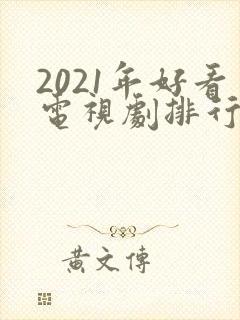 2021年好看
電視劇排行
黃文傳